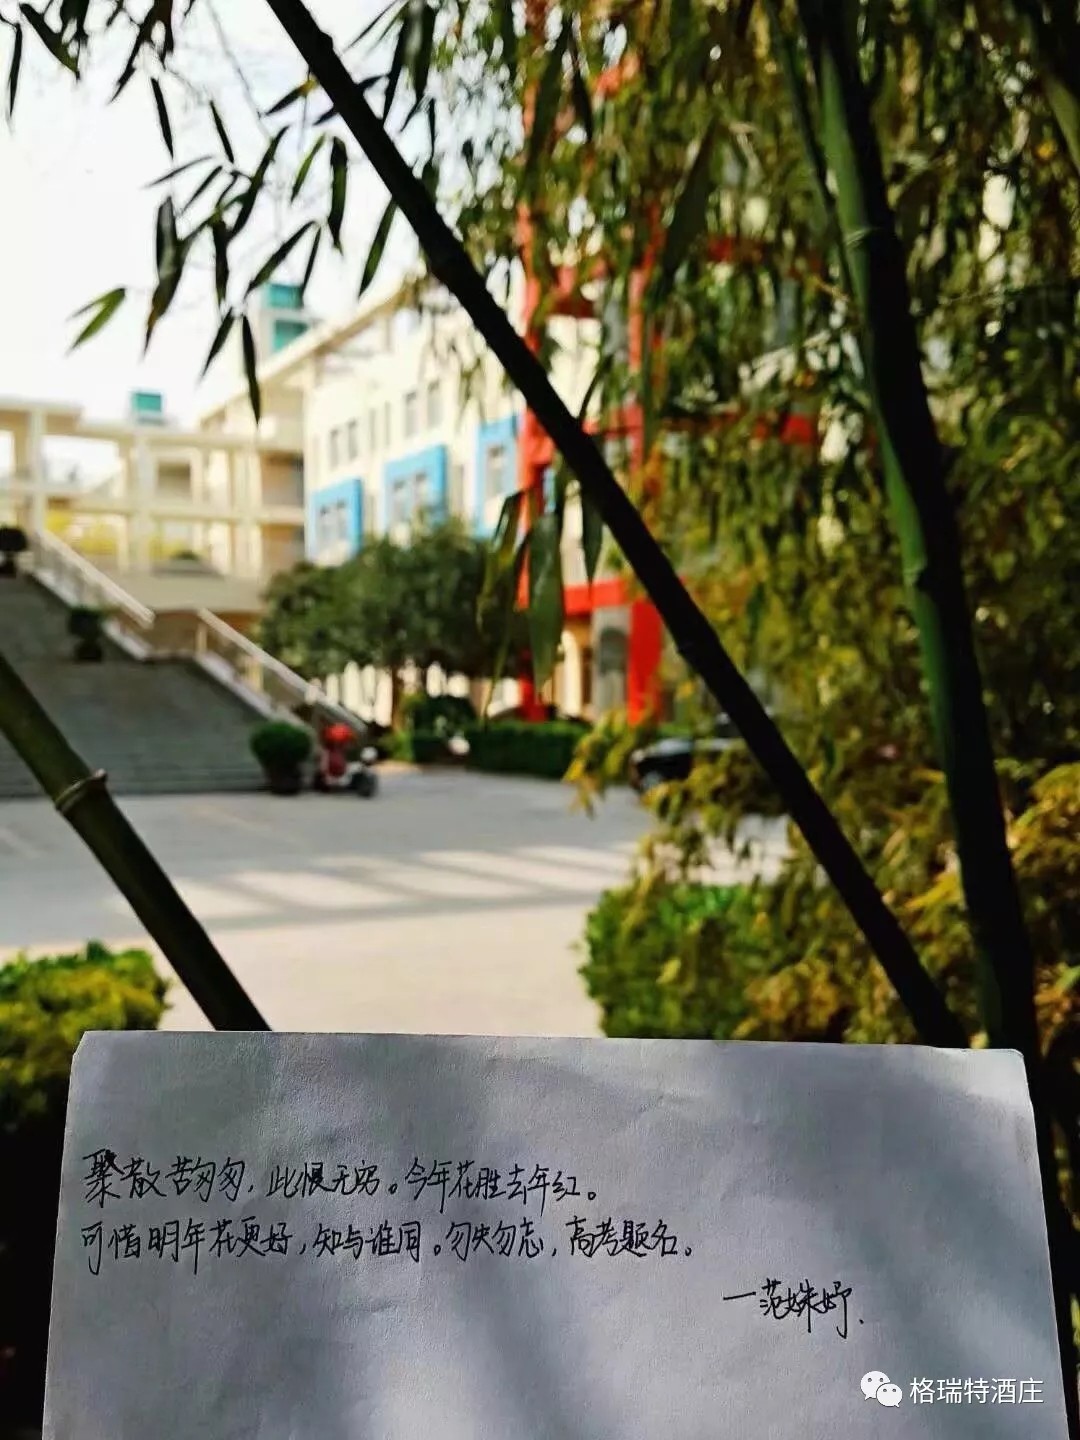 聚散苦匆匆，此恨无穷。今年花胜去年红。
可惜明年花更好，知与谁同。勿失勿忘，高考题名。
一范姝妤.
格瑞特酒庄